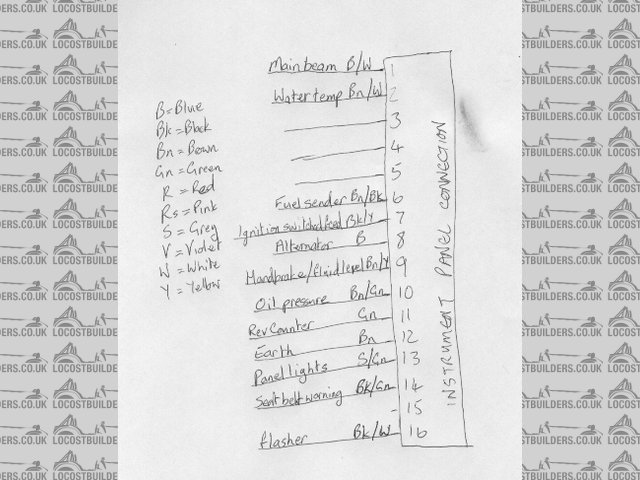 Main beam B/W 1
Water temp Bn/W 2
3
4
5
Fuel sender Bn/Bk 6
Ignition switched feed Bk/Y 7
Alternator B 8
Handbrake/fluid level Bn/Y 9
Oil pressure Bn/Gn 10
Rev Counter Gn 11
Earth Bn 12
Panel lights S/Gn 13
Seat belt warning Bk/Gn 14
15
flasher Bk/W 16
INSTRUMENT PANEL CONNECTION
B=Blue
Bk=Black
Bn=Brown
Gn=Green
R=Red
Rs=Pink
S=Grey
V=Violet
W=White
Y=Yellow
LOCOSTBUILDERS.CO.UK